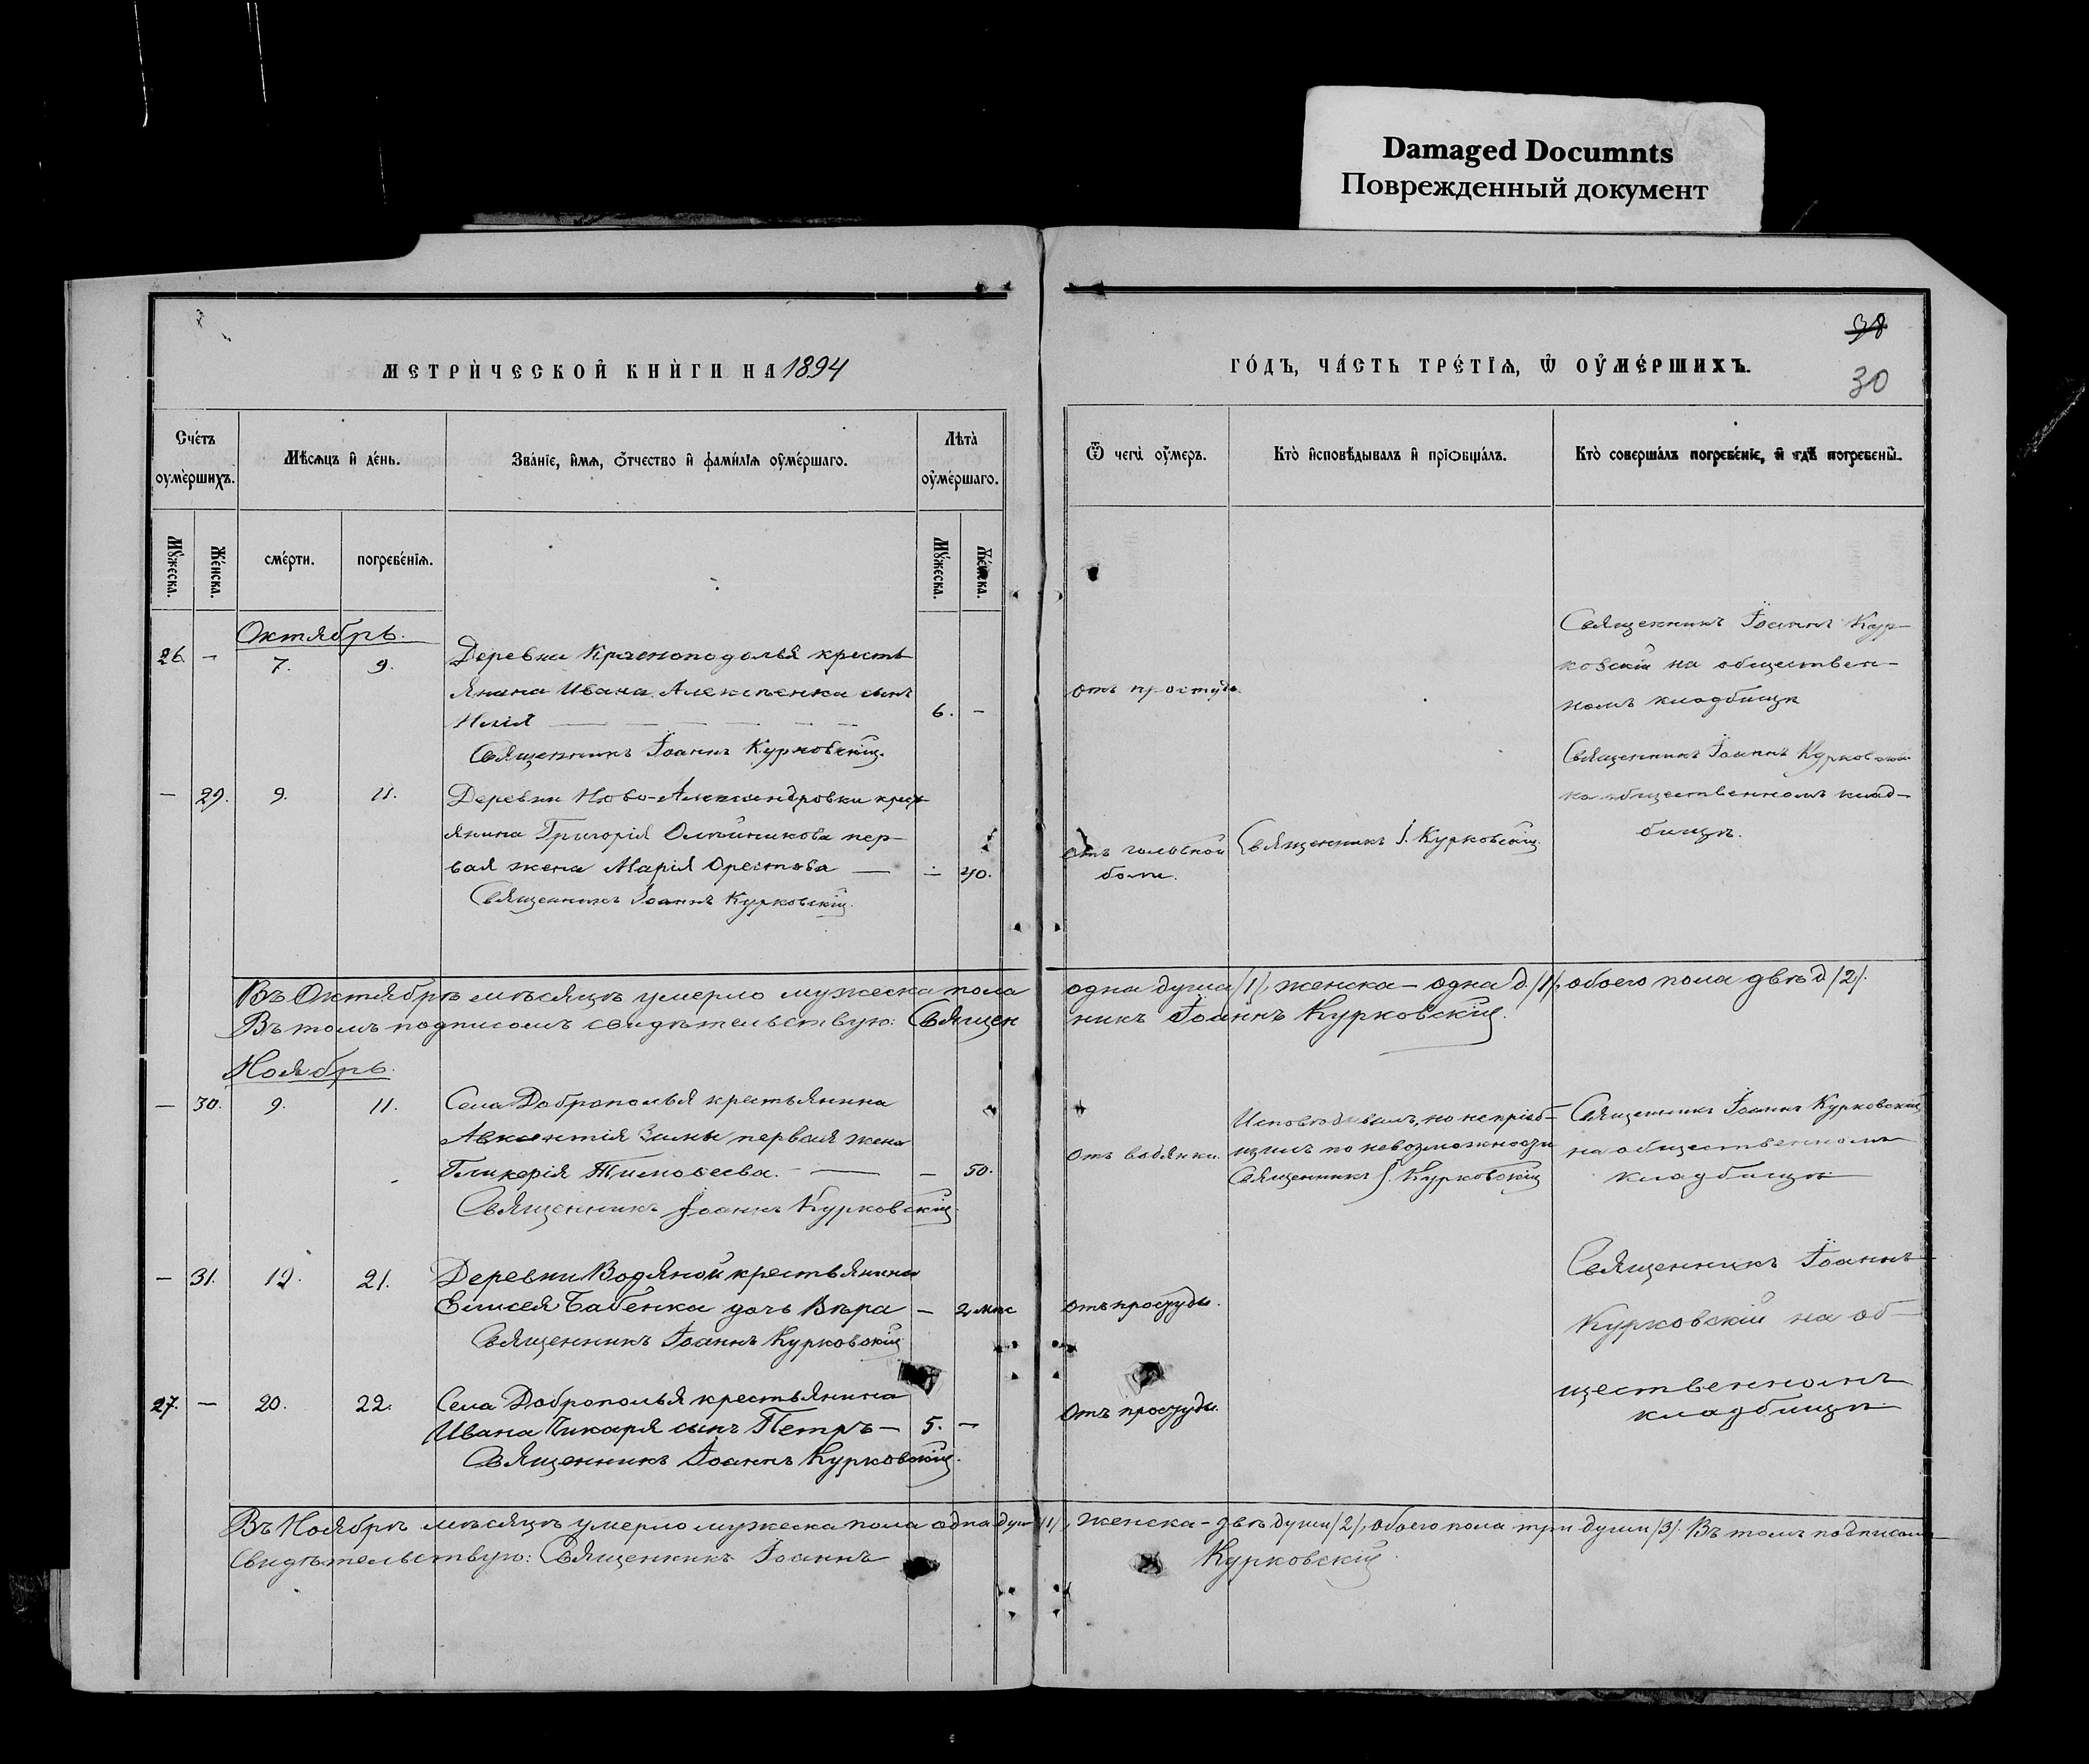 Damaged Documnts
Поврежденный документ
МЕТРИЧЕСКОЙ КНИГИ НА 1894
ГОДЪ, ЧАСТЬ ТРЕТІѦ, Ѡ ОУМЕРШИХЪ.
38
30
Счетъ оумершихъ.
Мѣсѧцъ и день.
Званіе, имѧ, отчество и фамиліѧ оумершаго.
Лѣта оумершаго.
Ѿ чегѡ оумеръ.
Кто исповѣдывалъ и пріобщалъ.
Кто совершалъ погребеніе, и гдѣ погребены.
Мужеска.
Женска.
смерти.
погребеніѧ.
Мужеска.
Женска.
Октябрь.
26. — 7. 9.
Деревни Красноподолья кресть-
янина Ивана Алексѣенка сынъ
Илія — 6. —
Священникъ Іоаннъ Курковскій.
отъ простуды.
Священникъ Іоаннъ Кур-
ковскій на обществен-
номъ кладбищѣ
— 29. 9. 11.
Деревни Ново-Александровки крест-
янина Григорія Олейникова пер-
вая жена Марія Орестова — — 40.
Священникъ Іоаннъ Курковскій.
отъ головной
боли.
Священникъ І. Курковскій.
Священникъ Іоаннъ Курковскій
на общественномъ клад-
бищѣ.
Въ Октябрѣ мѣсяцѣ умерло мужеска пола одна душа /1/, женска — одна д. /1/, обоего пола двѣ д. /2/.
Въ томъ подписомъ свидѣтельствую: Священникъ Іоаннъ Курковскій.
Ноябрь.
— 30. 9. 11.
Села Доброполья крестьянина
Авксентія Зимы первая жена
Гликерія Тимоѳеева. — — 50.
Священникъ Іоаннъ Курковскій.
Отъ водянки.
Исповѣдывалъ, но не пріоб-
щилъ по невозможности
Священникъ І. Курковскій
Священникъ Іоаннъ Курковскій
на общественномъ
кладбищѣ
— 31. 19. 21.
Деревни Водяной крестьянина
Елисея Бабенка дочь Вѣра — 2 мѣс
Священникъ Іоаннъ Курковскій
Отъ простуды.
Священникъ Іоаннъ
Курковскій на об-
щественномъ
кладбищѣ
27. — 20. 22.
Села Доброполья крестьянина
Ивана Чикаря сынъ Петръ — 5. —
Священникъ Іоаннъ Курковскій.
Отъ простуды.
Въ Ноябрѣ мѣсяцѣ умерло мужеска пола одна душ /1/, женска — двѣ души /2/, обоего пола три души /3/. Въ томъ подписомъ
свидѣтельствую: Священникъ Іоаннъ Курковскій.